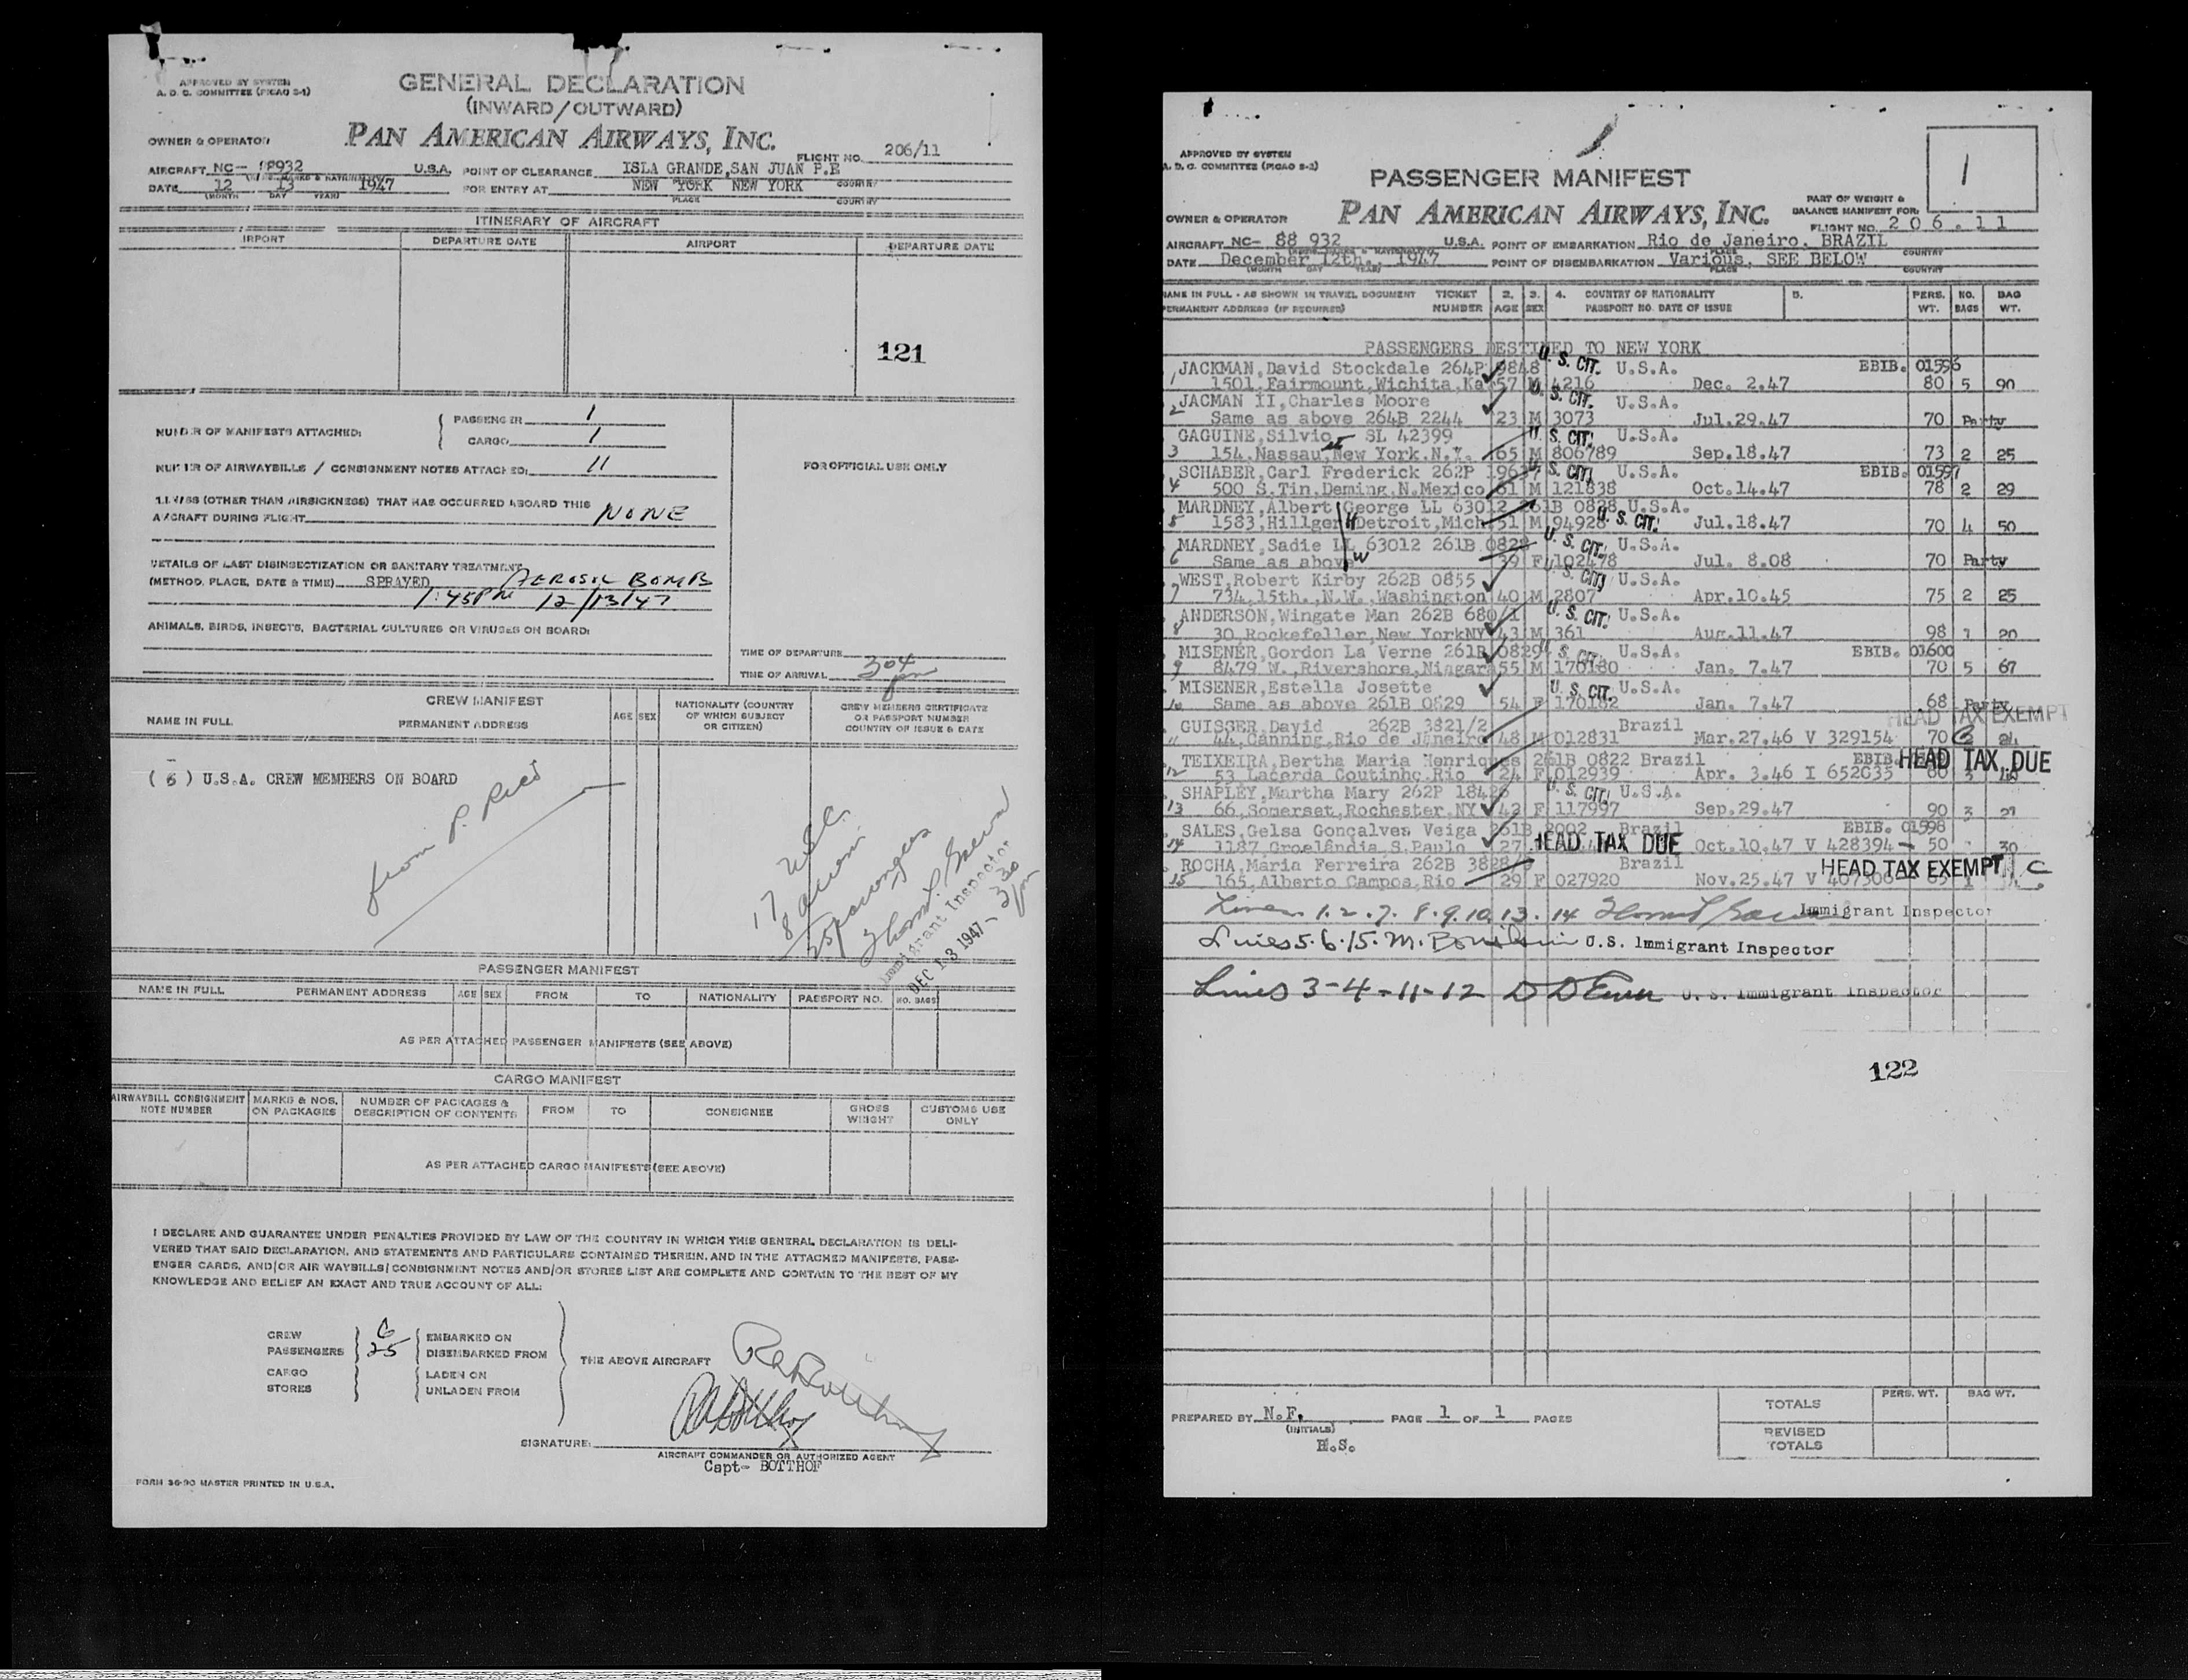 APPROVED BY SYSTEM
A. D. C. COMMITTEE (PICAO S-1)
GENERAL DECLARATION
(INWARD/OUTWARD)
OWNER & OPERATOR
PAN AMERICAN AIRWAYS, INC.
FLIGHT NO. 206/11
AIRCRAFT NC- 88932 U.S.A. POINT OF CLEARANCE ISLA GRANDE, SAN JUAN P.R
DATE 12 13 1947 FOR ENTRY AT NEW YORK NEW YORK
(MONTH DAY YEAR) PLACE COUNTRY
ITINERARY OF AIRCRAFT
IRPORT DEPARTURE DATE AIRPORT DEPARTURE DATE
121
NUMBER OF MANIFESTS ATTACHED: PASSENGER 1
CARGO 1
NUMBER OF AIRWAYBILLS / CONSIGNMENT NOTES ATTACHED: 11
FOR OFFICIAL USE ONLY
ILLNESS (OTHER THAN AIRSICKNESS) THAT HAS OCCURRED ABOARD THIS
AIRCRAFT DURING FLIGHT NONE
DETAILS OF LAST DISINSECTIZATION OR SANITARY TREATMENT
(METHOD, PLACE, DATE & TIME) SPRAYED AEROSOL BOMB
1:45PM 12/13/47
ANIMALS, BIRDS, INSECTS, BACTERIAL CULTURES OR VIRUSES ON BOARD:
TIME OF DEPARTURE
TIME OF ARRIVAL 304 pm
CREW MANIFEST
NAME IN FULL PERMANENT ADDRESS AGE SEX NATIONALITY (COUNTRY OF WHICH SUBJECT OR CITIZEN) CREW MEMBERS CERTIFICATE OR PASSPORT NUMBER COUNTRY OF ISSUE & DATE
( 6 ) U.S.A. CREW MEMBERS ON BOARD
from P. Rico
8 aliens
25 passengers
Immigrant Inspector
DEC 13 1947
330 pm
PASSENGER MANIFEST
NAME IN FULL PERMANENT ADDRESS AGE SEX FROM TO NATIONALITY PASSPORT NO. NO. BAGS
AS PER ATTACHED PASSENGER MANIFESTS (SEE ABOVE)
CARGO MANIFEST
AIRWAYBILL CONSIGNMENT NOTE NUMBER MARKS & NOS. ON PACKAGES NUMBER OF PACKAGES & DESCRIPTION OF CONTENTS FROM TO CONSIGNEE GROSS WEIGHT CUSTOMS USE ONLY
AS PER ATTACHED CARGO MANIFESTS (SEE ABOVE)
I DECLARE AND GUARANTEE UNDER PENALTIES PROVIDED BY LAW OF THE COUNTRY IN WHICH THIS GENERAL DECLARATION IS DELI-
VERED THAT SAID DECLARATION, AND STATEMENTS AND PARTICULARS CONTAINED THEREIN, AND IN THE ATTACHED MANIFESTS, PASS-
ENGER CARDS, AND/OR AIR WAYBILLS/CONSIGNMENT NOTES AND/OR STORES LIST ARE COMPLETE AND CONTAIN TO THE BEST OF MY
KNOWLEDGE AND BELIEF AN EXACT AND TRUE ACCOUNT OF ALL:
CREW 6 EMBARKED ON
PASSENGERS 25 DISEMBARKED FROM
THE ABOVE AIRCRAFT
CARGO LADEN ON
STORES UNLADEN FROM
SIGNATURE:
AIRCRAFT COMMANDER OR AUTHORIZED AGENT
Capt- BOTTHOF
FORM 36-90 MASTER PRINTED IN U.S.A.
APPROVED BY SYSTEM
A. D. C. COMMITTEE (PICAO S-2)
1
PASSENGER MANIFEST
PART OF WEIGHT &
BALANCE MANIFEST FOR:
OWNER & OPERATOR PAN AMERICAN AIRWAYS, INC. FLIGHT NO. 206.11
AIRCRAFT NC- 88 932 U.S.A. POINT OF EMBARKATION Rio de Janeiro. BRAZIL
DATE December 12th., 1947 POINT OF DISEMBARKATION Various, SEE BELOW
(MONTH DAY YEAR) PLACE COUNTRY
NAME IN FULL - AS SHOWN IN TRAVEL DOCUMENT TICKET 2. 3. 4. COUNTRY OF NATIONALITY 5. PERS. NO. BAG
PERMANENT ADDRESS (IF REQUIRED) NUMBER AGE SEX PASSPORT NO. DATE OF ISSUE WT. BAGS WT.
PASSENGERS DESTINED TO NEW YORK
JACKMAN, David Stockdale 264P 9848 U. S. CIT. U.S.A. EBIB. 01596
1 1501, Fairmount, Wichita, Ka 57 M 4216 Dec. 2.47 80 5 90
JACMAN II, Charles Moore U. S. CIT. U.S.A.
2 Same as above 264B 2244 23 M 3073 Jul.29.47 70 Party
GAGUINE, Silvio SL 42399 U. S. CIT. U.S.A.
3 154, Nassau, New York, N.Y. 65 M 806789 Sep.18.47 73 2 25
SCHABER, Carl Frederick 262P U. S. CIT. U.S.A. EBIB. 01597
4 500 S. Tin, Deming, N.Mexico 61 M 121838 Oct.14.47 78 2 29
MARDNEY, Albert George LL 63012 261B 0828 U.S.A.
5 1583, Hillger H Detroit, Mich 51 M 94928 U. S. CIT. Jul.18.47 70 4 50
MARDNEY, Sadie LL 63012 261B 0828 U. S. CIT. U.S.A.
6 Same as above W 39 F 102478 Jul. 8.08 70 Party
WEST, Robert Kirby 262B 0855 S. CIT. U.S.A.
7 734, 15th., N.W., Washington 40 M 2807 Apr.10.45 75 2 25
ANDERSON, Wingate Man 262B 680/1 U. S. CIT. U.S.A.
8 30, Rockefeller, New YorkNY 43 M 361 Aug.11.47 98 1 20
MISENER, Gordon La Verne 261B 0829 U. S. CIT. U.S.A. EBIB. 01600
9 8479 W., Rivershore, Niagara 55 M 170180 Jan. 7.47 70 5 67
MISENER, Estella Josette U. S. CIT. U.S.A.
10 Same as above 261B 0829 54 F 170182 Jan. 7.47 68 Party
HEAD TAX EXEMPT
GUISSER, David 262B 3821/2 Brazil
11 44, Canning, Rio de Janeiro 48 M 012831 Mar.27.46 V 329154 70
TEIXEIRA, Bertha Maria Henriques 261B 0822 Brazil EBIB. HEAD TAX DUE
12 53 Lacerda Coutinho, Rio 24 F 012939 Apr. 3.46 I 652035 60 3
SHAPLEY, Martha Mary 262P U. S. CIT. U.S.A.
13 66, Somerset, Rochester, NY 42 F 117997 Sep.29.47 90 3
SALES, Gelsa Gonçalves Veiga 261B 2002 Brazil EBIB. 01598
14 1187 Groelândia, S.Paulo 27 HEAD TAX DUE Oct.10.47 V 428394 50 30
ROCHA, Maria Ferreira 262B Brazil HEAD TAX EXEMPT C
15 165, Alberto Campos, Rio 29 F 027920 Nov.25.47 V
Lines 1.2.7.8.9.10.13.14 Immigrant Inspector
Lines 5.6.15. U.S. Immigrant Inspector
Lines 3-4-11-12 U. S. Immigrant Inspector
122
TOTALS PERS. WT. BAG WT.
PREPARED BY N.F. PAGE 1 OF 1 PAGES
(INITIALS)
H.S.
REVISED
TOTALS